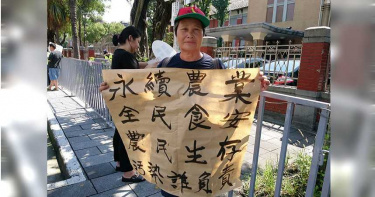 永續農業
全民食安
農民生存
污染誰負責